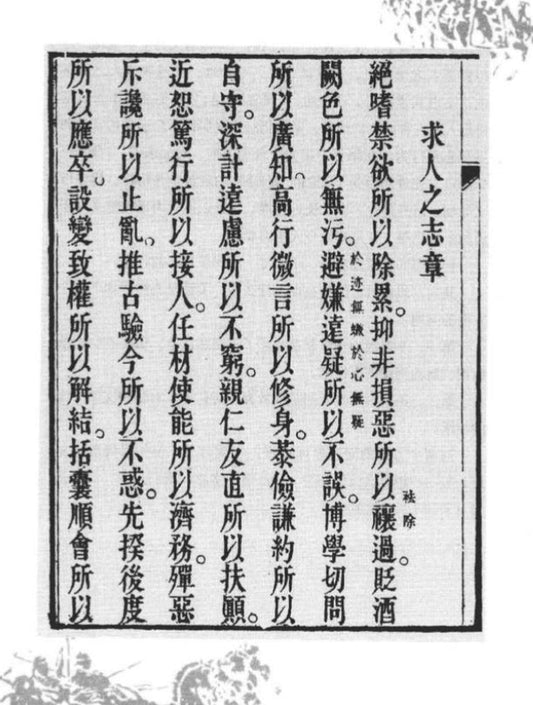 求人之志章
袪除
絕嗜禁欲所以除累。抑非損惡所以禳過。貶酒
於迹無嫌於心無疑
闕色所以無污。避嫌遠疑所以不誤。博學切問
所以廣知。高行微言所以修身。恭儉謙約所以
自守。深計遠慮所以不窮。親仁友直所以扶顚。
近恕篤行所以接人。任材使能所以濟務。殫惡
斥讒所以止亂。推古驗今所以不惑。先揆後度
所以應卒。設變致權所以解結。括囊順會所以